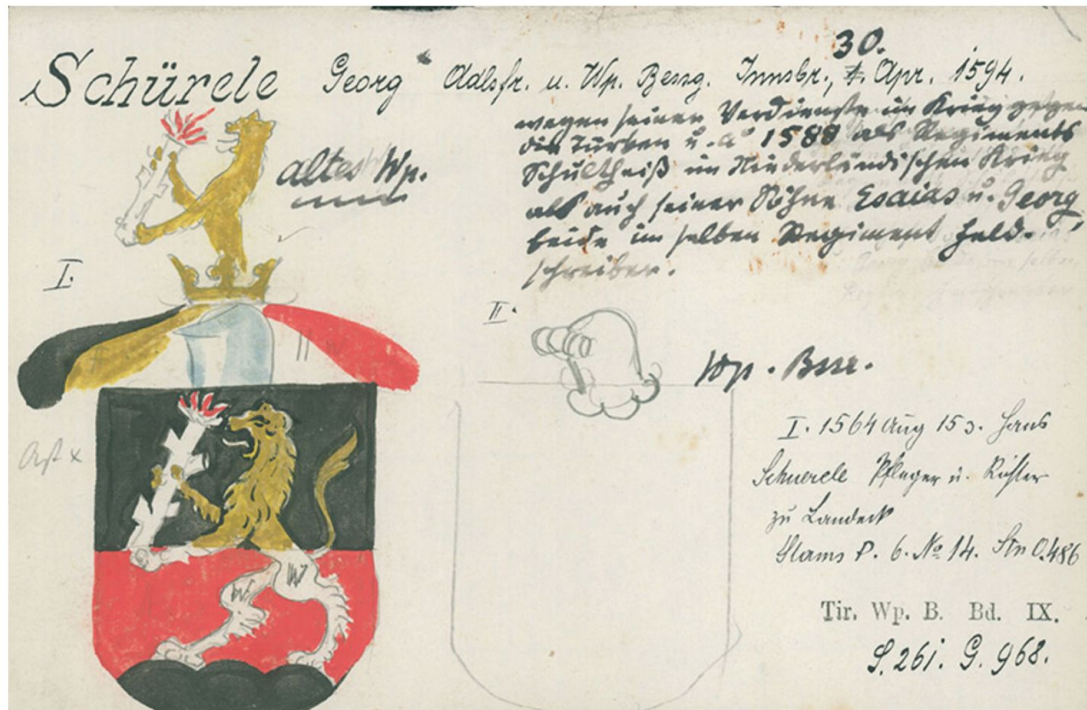 30.
Schürele Georg Adlsfr. u. Wp. Bessg. Innsbr., Apr. 1594.
wegen seiner Verdienste im Krieg gegen
die Türken u. a° 1588 als Regiments
Schultheiß im Niederländischen Krieg
als auch seiner Söhne Esaias u. Georg,
beide im selben Regiment Feld-
schreiber.
altes Wp.
I.
II.
Wp. Besse.
Ast x
W W
I. 1564 Aug 15 s. Hans
Schuerele Pfleger u. Richter
zu Landeck
Stams P. 6. No 14. Stn O.486
Tir. Wp. B. Bd. IX.
S. 261. G. 968.